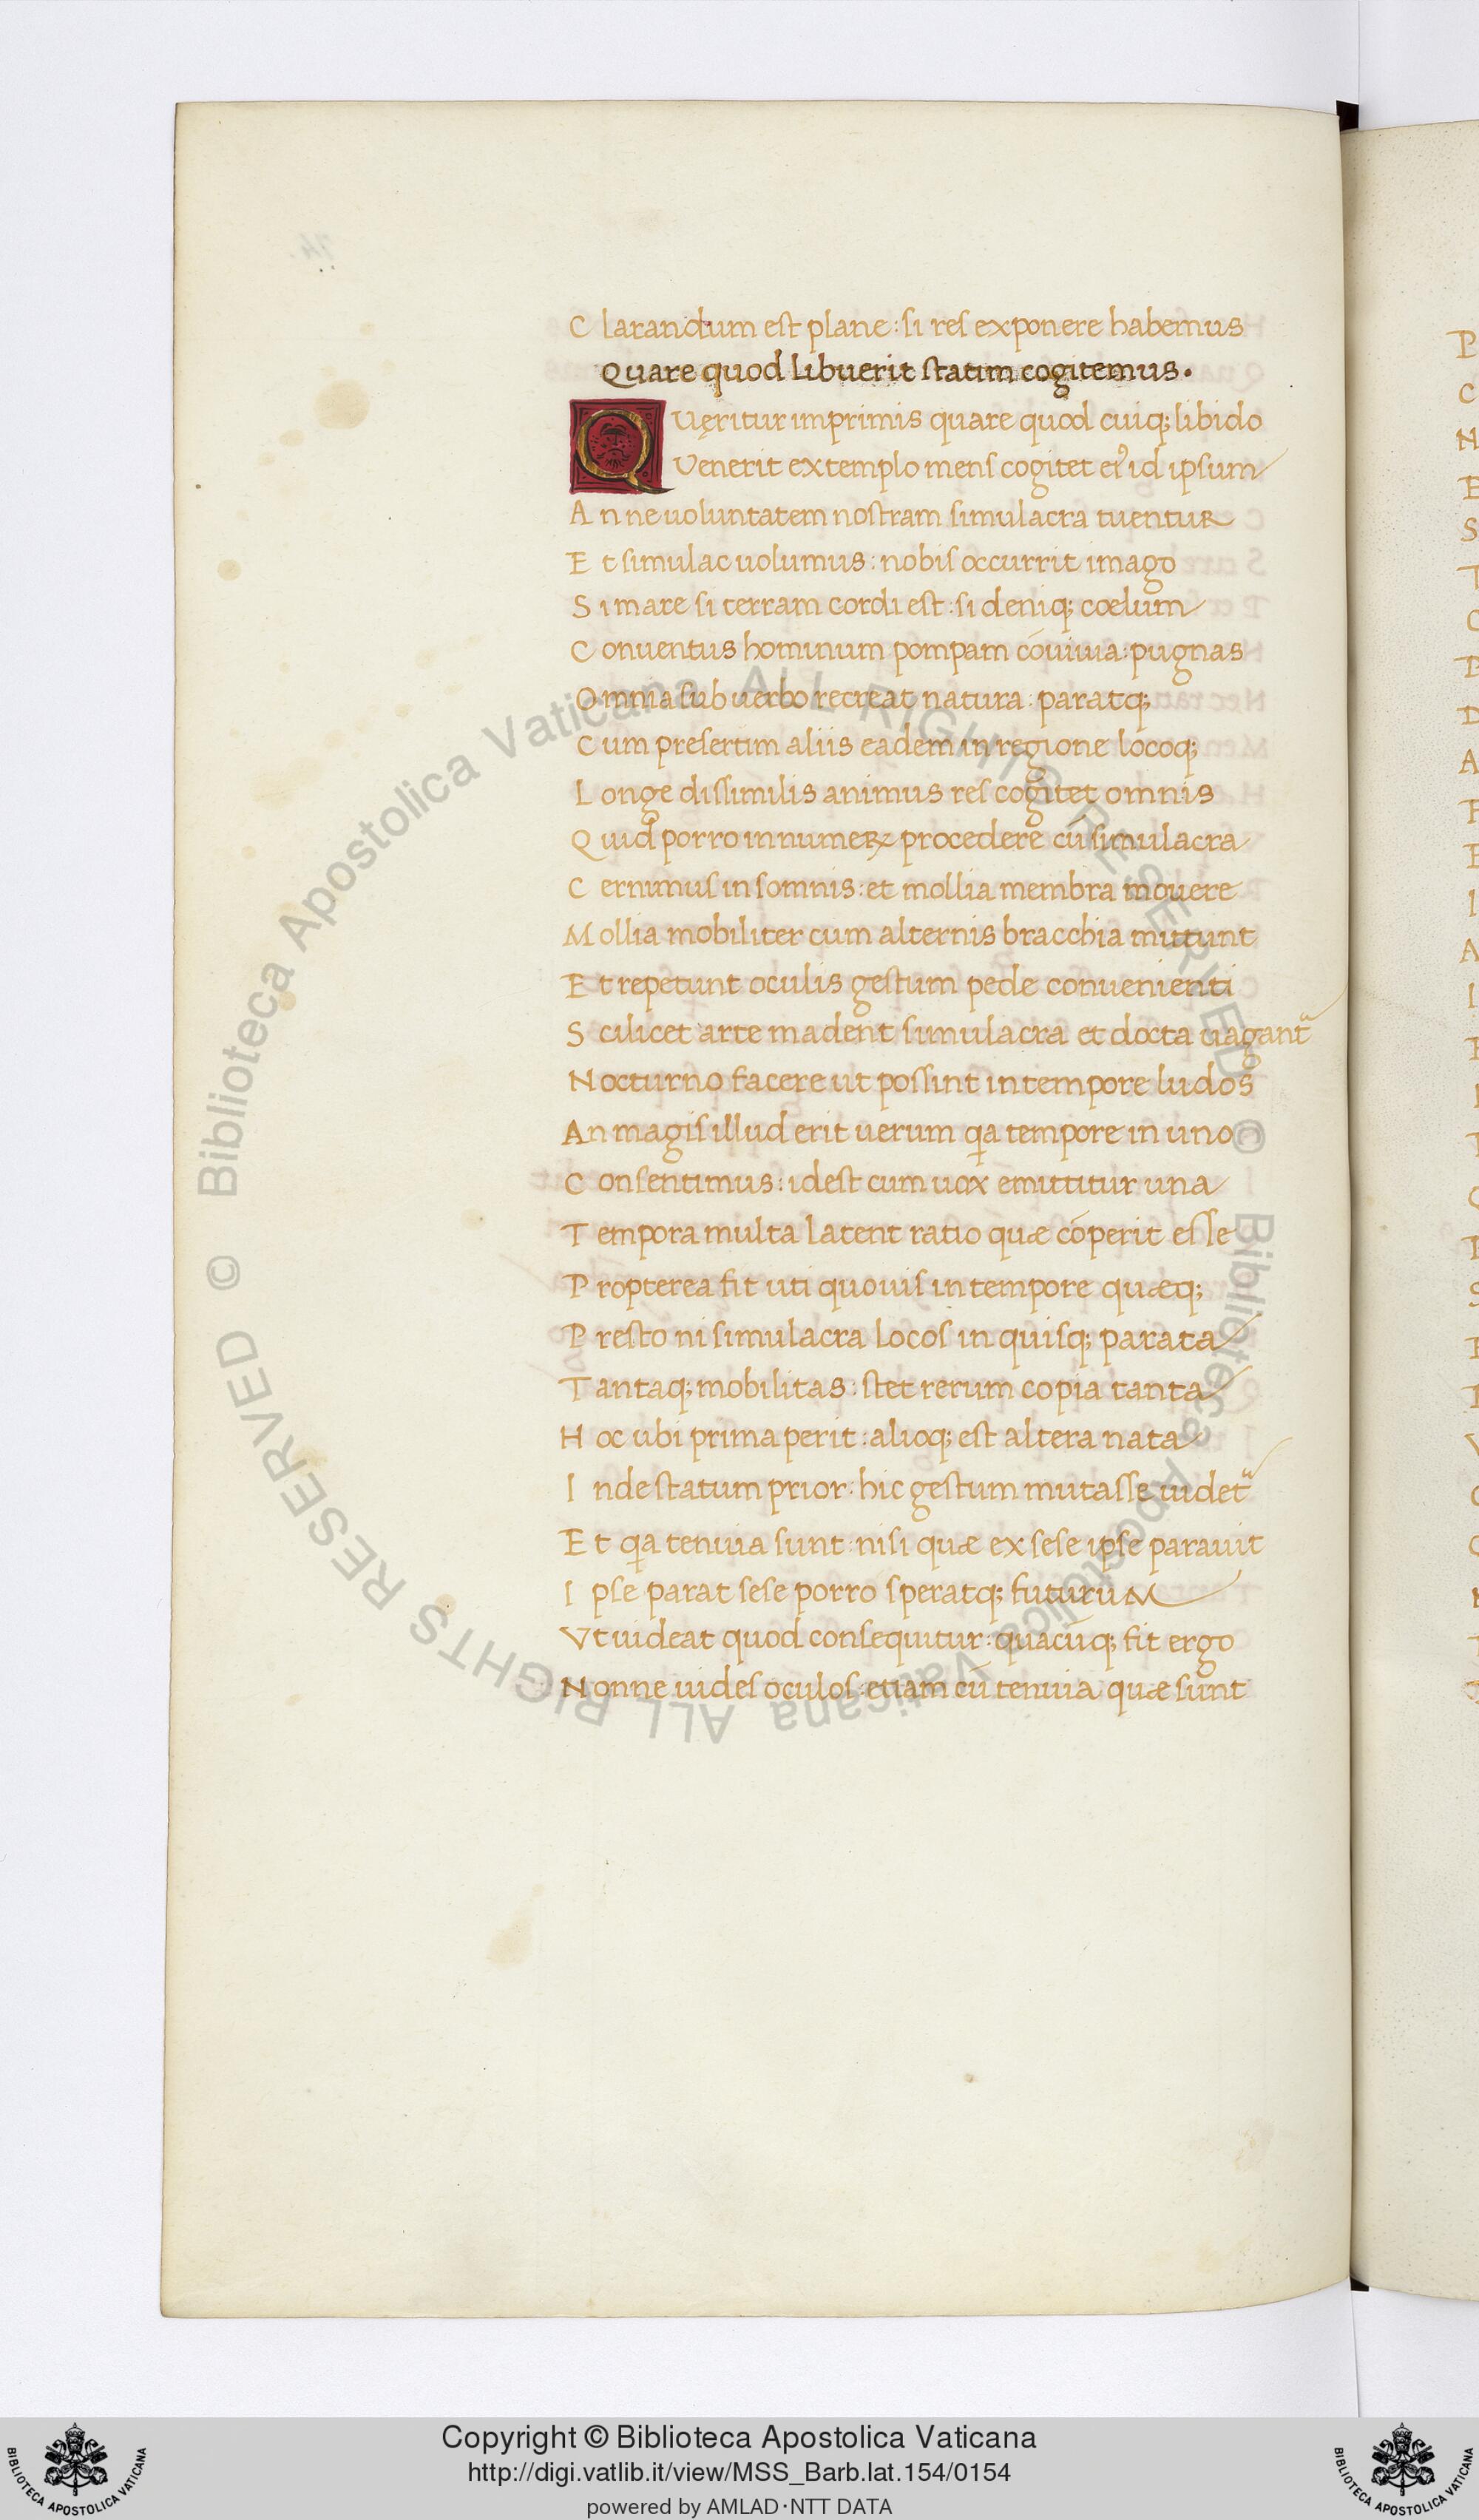 Clarandum est plane: si res exponere habemus
Quare quod libuerit statim cogitemus.
Quęritur imprimis quare quod cuiq; libido
Venerit extemplo mens cogitet eiꝰ id ipsum
Anne uoluntatem nostram simulacra tuentur
Et simulac uolumus: nobis occurrit imago
Si mare si terram cordi est: si deniq; cœlum
Conuentus hominum pompam cōuiuia: pugnas
Omnia sub uerbo recreat natura: paratq;
Cum presertim aliis eadem in regione locoq;
Longe dissimilis animus res cogitet omnis
Quid porro in numeꝝ procedere cū simulacra
Cernimus in somnis: et mollia membra mouere
Mollia mobiliter cum alternis bracchia mittunt
Et repetunt oculis gestum pede conuenienti
Scilicet arte madent simulacra et docta uagant᷑
Nocturno facere ut possint in tempore ludos
An magis illud erit uerum qa tempore in uno
Consentimus: idest cum uox emittitur una
Tempora multa latent ratio quæ cōperit esse
Propterea fit uti quouis in tempore quæq;
Presto ni simulacra locos in quisq; parata
Tantaq; mobilitas: stet rerum copia tanta
Hoc ubi prima perit: alioq; est altera nata
Inde statum prior: hic gestum mutasse uidet᷑
Et qa tenuia sunt: nisi quæ ex sese ipse parauit
Ipse parat sese porro speratq; futurum
Vt uideat quod consequitur: quacūq; fit ergo
Nonne uides oculos: etiam cū tenuia quæ sunt
Copyright © Biblioteca Apostolica Vaticana
http://digi.vatlib.it/view/MSS_Barb.lat.154/0154
powered by AMLAD·NTT DATA
BIBLIOTECA APOSTOLICA VATICANA
BIBLIOTECA APOSTOLICA VATICANA
© Biblioteca Apostolica Vaticana ALL RIGHTS RESERVED
© Biblioteca Apostolica Vaticana ALL RIGHTS RESERVED